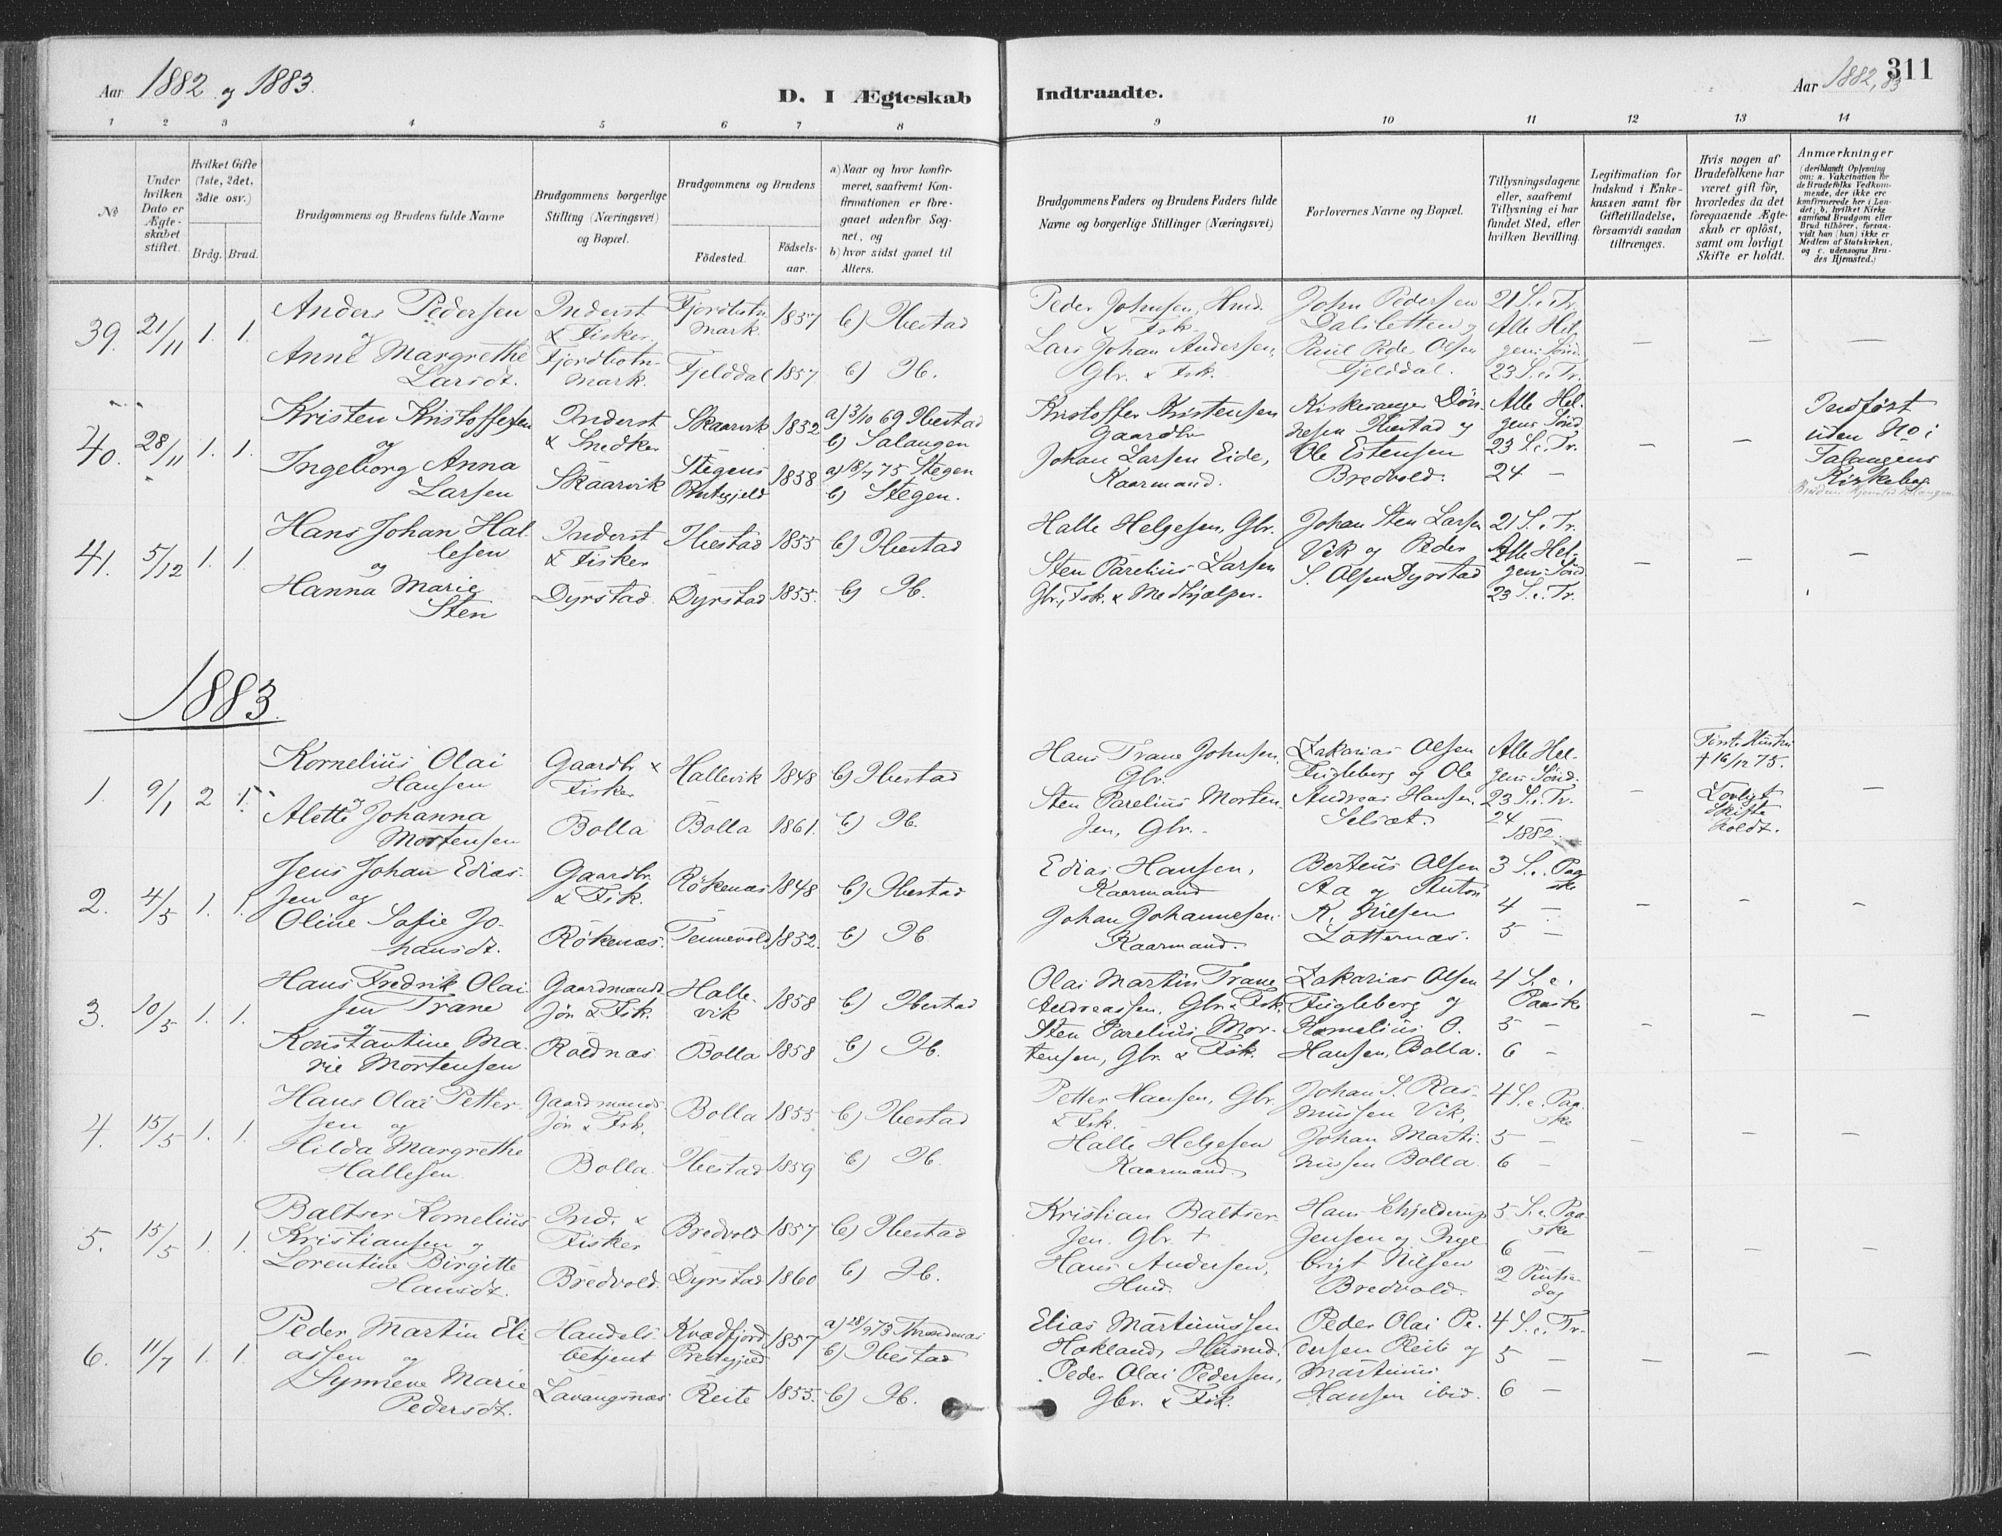 Aar 1882 og 1883.
D. I Ægteskab
Indtraadte.
Aar 1882, 83
311
1 2 3 4 5 6 7 8 9 10 11 12 13 14
No
Under hvilken Dato er Ægteskabet stiftet.
Hvilket Gifte (1ste, 2det, 3die osv.)
Brdg. Brud.
Brudgommens og Brudens fulde Navne
Brudgommens borgerlige Stilling (Næringsvei) og Bopæl.
Brudgommens og Brudens
Fødested.
Fødselsaar.
a) Naar og hvor konfirmeret, saafremt Konfirmationen er foregaaet udenfor Sognet, og
b) hvor sidst gaaet til Alters.
Brudgommens Faders og Brudens Faders fulde Navne og borgerlige Stillinger (Næringsvei)
Forlovernes Navne og Bopæl.
Tillysningsdagene eller, saafremt Tillysning ei har fundet Sted, efter hvilken Bevilling.
Legitimation for Indskud i Enkekassen samt for Giftetilladelse, forsaavidt saadan tiltrænges.
Hvis nogen af Brudefolkene har været gift før, hvorledes da det foregaaende Ægteskab er opløst, samt om lovligt Skifte er holdt.
Anmærkninger
(deriblandt Oplysning om: a. Vakcination for de Brudefolks Vedkommende, der ikke ere konfirmerede her i Landet; b. hvilket Kirkesamfund Brudgom eller Brud tilhører, forsaavidt han (hun) ikke er Medlem af Statskirken, og c. udensogns Brudes Hjemsted.)
39. 21/11 1. 1.
Anders Pedersen
og
Anne Margrethe
Larsdt.
Inderst
& Fisker
Fjordbotn
mark.
Fjordbotn
mark. 1857
Fjelddal 1857
b) Ibestad
b) Ib.
Peder Johnsen, Hmd.
& Fisk.
Lars Johan Andersen,
Gbr. & Fsk.
John Pedersen
Dalsletten og
Paul Peder Olsen
Fjelddal.
21 S. e. Tr.
Alle Hel-
gens Sönd.
23 S. e. Tr.
— — —
40. 28/11 1. 1.
Kristen Kristoffersen
og
Ingeborg Anna
Larsen
Inderst
& Snedker
Skaarvik
Skaarvik 1852
Stegens
Præstegjeld 1858
a) 3/10 69 Ibestad
b) Salangen
a) 18/7 75 Stegen
b) Stegen.
Kristoffer Kristensen
Gaardbr
Johan Larsen Eide,
Kaarmand.
Kirkesanger Dön-
nesen Ibestad og
Ole Estensen
Bredvold.
Alle Hel-
gens Sönd
23 S. e. Tr.
24 —
— —
Indfört
uden No i
Salangens
Kirkebog
41. 5/12 1. 1.
Hans Johan Hal-
lesen
og
Hanna Marie
Sten
Inderst
& Fisker
Dyrstad.
Ibestad 1855
Dyrstad 1855.
b) Ibestad
b) Ib.
Halle Helgesen, Gbr.
Sten Parelius Larsen
Gbr., Fsk. & Medhjælper.
Johan Sten Larsen
Vik og Peder
S. Olsen Dyrstad
21 S. e. Tr.
Alle Hel-
gens Sönd
23 S. e. Tr.
— — —
1883.
1. 9/1 2 1.
Kornelius Olai
Hansen
Alette Johanna
Mortensen
Gaardbr &
Fisker
Bolla
Hallevik 1848
Bolla 1861.
b) Ibestad
b) Ib.
Hans Trane Johnsen
Gbr.
Sten Parelius Morten
sen, Gbr.
Zakarias Olsen
Fugleberg og Ole
Andreas Hansen
Selsæt.
Alle Hel-
gens Sönd.
23 S. e. Tr.
24 —
1882.
—
Förste Hustru
† 16/12 75.
Lovligt
Skifte
holdt.
—
2. 4/5 1. 1.
Jens Johan Edias-
sen og
Oline Sofie Jo-
hansdt.
Gaardbr
& Fisk.
Rökenæs.
Rökenæs 1848
Tennevold 1852.
b) Ibestad
b) Ib
Edias Hansen,
Kaarmand
Johan Johannesen
Kaarmand.
Berteus Olsen
Aa og Anton
K. Nilsen
Lotternæs.
3 S. e. Paa-
ske
4 —
5 —
— — —
3. 10/5 1. 1.
Hans Fredrik Olai
sen Trane
og
Konstantine Ma-
rie Mortensen
Gaardmands
sön & Fisk.
Roldnæs
Halle-
vik 1858
Bolla 1858
b) Ibestad
b) Ib.
Olai Martin Trane
Andreassen, Gbr. & Fisk.
Sten Parelius Mor-
tensen, Gbr. & Fisk.
Zakarias Olsen
Fugleberg og
Kornelius O.
Hansen, Bolla.
4 S. e.
Paaske
5 —
6 —
— — —
4. 15/5 1. 1.
Hans Olai Petter-
sen og
Hilda Margrethe
Hallesen
Gaardmands
sön & Fsk.
Bolla.
Bolla 1855
Ibestad 1859
b) Ibestad
b) Ib.
Petter Hansen, Gbr.
& Fsk.
Halle Helgesen
Kaarmand.
Johan S. Ras-
mussen Vik,
Johan Marti-
nussen Bolla.
4 S. e. Paa-
ske
5 —
6 —
— — —
5. 15/5 1. 1.
Baltser Kornelius
Kristiansen og
Lorentine Birgitte
Hansdt.
Ind. &
Fisker
Bredvold.
Bredvold 1857
Dyrstad 1860
b) Ibestad
b) Ib.
Kristian Baltser-
sen. Gbr. †
Hans Andersen,
Hmd.
Hans Schjelderup
Jensen og Inge
brigt Nilsen
Bredvold.
5 S. e. Paa-
ske
6 —
2 Pintse
dag
— — —
6. 11/7 1. 1.
Peder Martin Eli-
assen og
Synneve Marie
Pedersdt.
Handels-
betjent
Lavangsnæs
Kvædfjord
Prestegjeld 1857
Reite 1855.
a) 28/9 73 Trondenæs
b) Ibestad
b) Ib.
Elias Martinussen
Hokland, Husmd.
Peder Olai Pedersen,
Gbr. & Fisk.
Peder Olai Pe-
dersen Reite og
Martinus
Hansen ibid.
4 S. e. Tr.
5 —
6 —
— — —